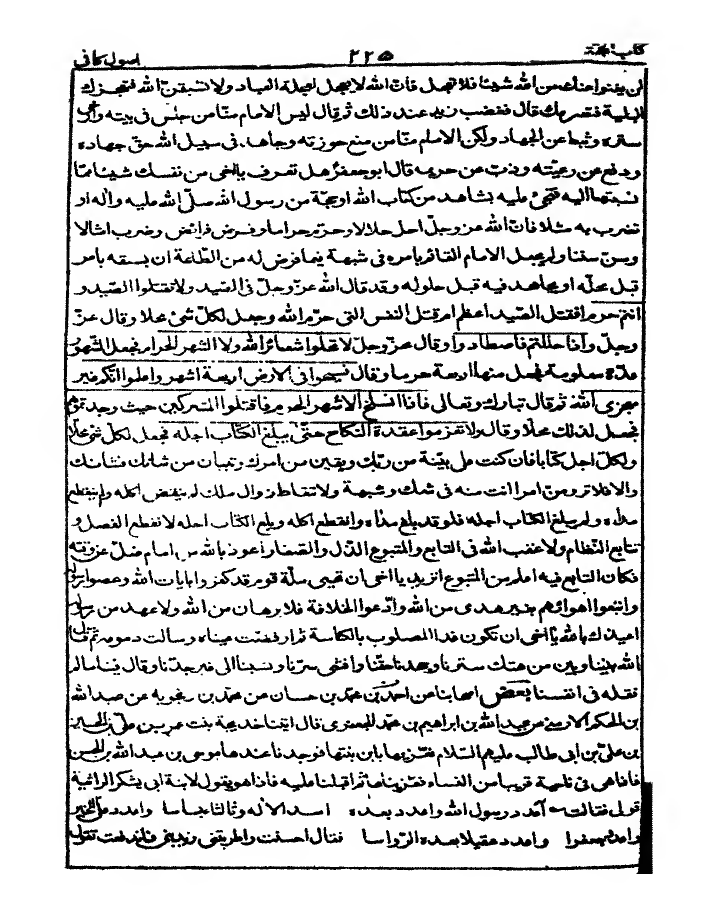 كتاب الحجة ٢٢٥ اصول كافي
لن يغنوا عنك من الله شيئا فلا تعجل فان الله لا يعجل لعجلة العباد ولا تسبقن الله فتعجزك
البلية فتصرعك قال فغضب زيد عند ذلك ثم قال ليس الامام منا من جلس فى بيته وارخى
ستره وثبط عن الجهاد ولكن الامام منا من منع حوزته وجاهد فى سبيل الله حق جهاده
ودفع عن رعيته وذب عن حريمه قال ابو جعفر هل تعرف يا اخى من نفسك شيئا مما
نسبتها اليه فتجئ عليه بشاهد من كتاب الله او حجة من رسول الله صلى الله عليه واله او
تضرب به مثلا فان الله عز وجل احل حلالا وحرم حراما وفرض فرائض وضرب امثالا
وسن سننا ولم يجعل الامام القائم بامره فى شبهة فيما فرض له من الطاعة ان يسبقه بامر
قبل محله او يجاهد فيه قبل حلوله وقد قال الله عز وجل فى الصيد ولا تقتلوا الصيد و
انتم حرم افقتل الصيد أعظم ام قتل النفس التى حرم الله وجعل لكل شئ محلا وقال عز
وجل واذا حللتم فاصطادوا وقال عز وجل لا تحلوا شعائر الله ولا الشهر الحرام فجعل الشهور
عدة معلومة فجعل منها اربعة حرما وقال فسيحوا فى الارض اربعة اشهر واعلموا انكم غير
معجزى الله ثم قال تبارك وتعالى فاذا انسلخ الاشهر الحرم فاقتلوا المشركين حيث وجدتموهم
فجعل لذلك محلا وقال ولا تعزموا عقدة النكاح حتى يبلغ الكتاب اجله فجعل لكل شئ محلا
ولكل اجل كتابا فان كنت على بينة من ربك ويقين من امرك وتبيان من شانك فشانك
والا فلا ترومن امرا انت منه فى شك وشبهة ولا تتعاط زوال ملك لم ينقض اكله ولم ينقطع
مداه ولم يبلغ الكتاب اجله فلو قد بلغ مداه وانقطع اكله وبلغ الكتاب اجله لانقطع الفصل و
تتابع النظام ولاعقب الله فى التابع والمتبوع الذل والصغار اعوذ بالله من امام ضل عن وقته
فكان التابع فيه اعلم من المتبوع اتريد يا اخى ان تحيى ملة قوم قد كفروا بايات الله وعصوا رسوله
واتبعوا اهوائهم بغير هدى من الله وادعوا الخلافة فلا برهان من الله ولا عهد من رسوله
اعيذك بالله يا اخى ان تكون غدا المصلوب بالكناسة ثم ارفضت عيناه وسالت دموعه ثم قال
الله بيننا وبين من هتك سترنا وجحدنا حقنا وافشى سرنا ونسبنا الى غير جدنا وقال فينا ما لم
نقله فى انفسنا بعض اصحابنا عن احمد بن محمد بن حسان عن محمد بن رنجويه عن عبد الله
بن الحكم الارمنى عن عبد الله بن ابراهيم بن محمد الجعفرى قال اتينا خديجة بنت عمر بن على بن الحسين
بن على بن ابى طالب عليهم السلام نعزيها بابن بنتها فوجدنا عندها موسى بن عبد الله بن الحسن
فاذا هى فى ناحية قريبا من النساء فعزيناهم ثم اقبلنا عليه فاذا هو يقول لابنة ابى يشكر الراثية
قولى فقالت اعدد رسول الله واعدد بعده اسد الاله وثالثا عباسا واعدد على الخير
واعدد جعفرا واعدد عقيلا بعده الرواسا فقال احسنت واطربتنى زيدينى فاندفعت تقول